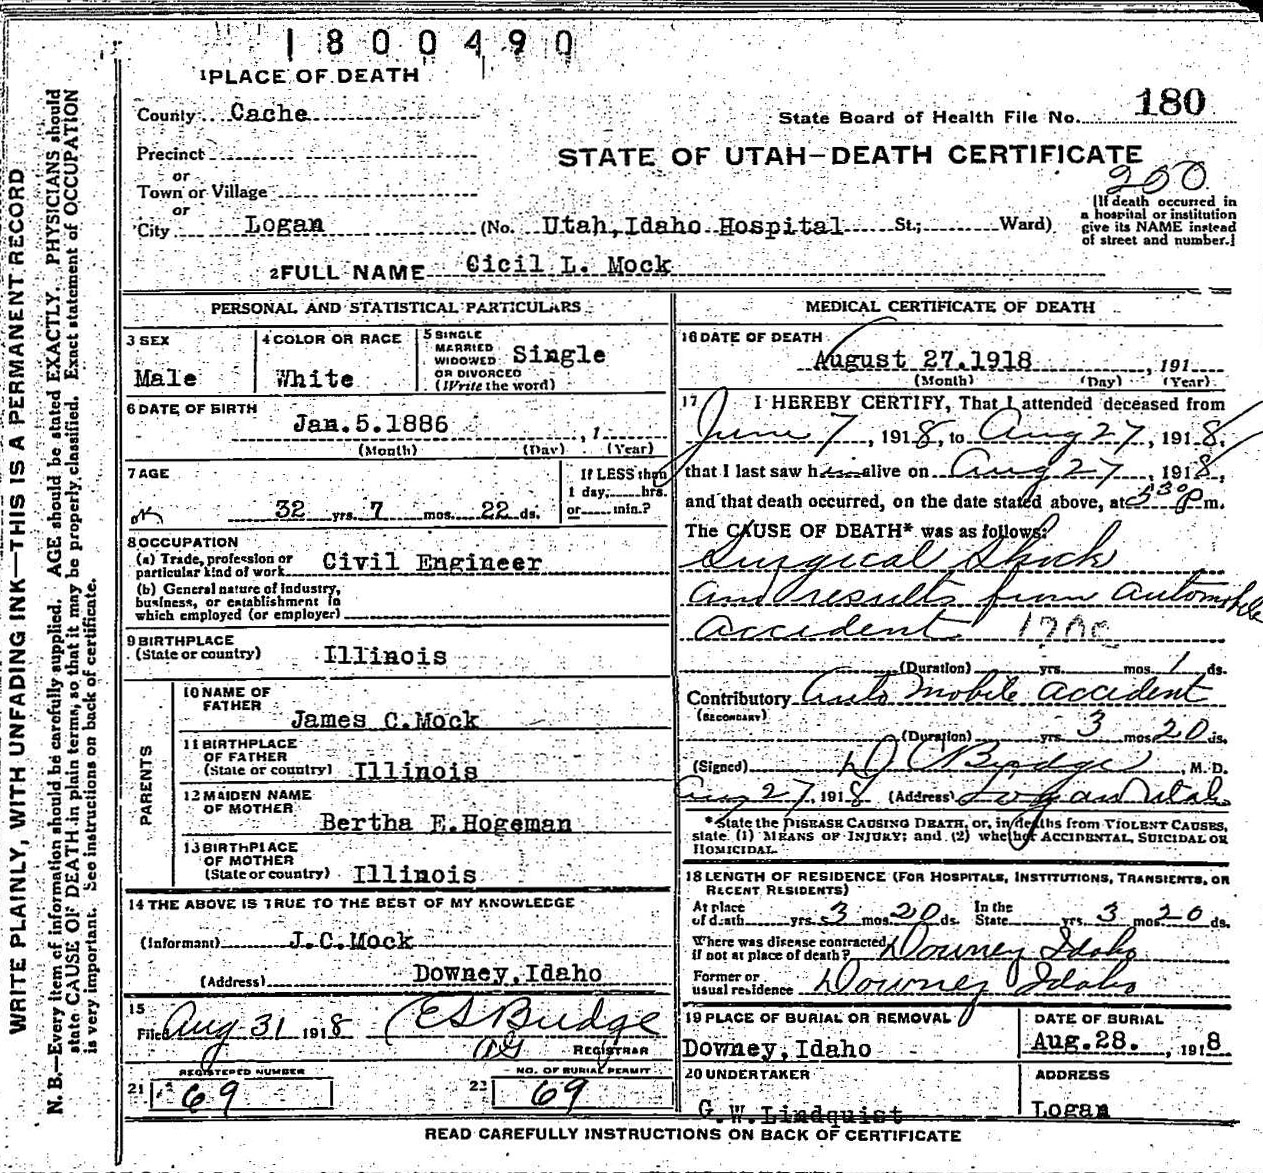 1800490
1 PLACE OF DEATH
County Cache
State Board of Health File No. 180
Precinct
or
Town or Village
or
City Logan
STATE OF UTAH—DEATH CERTIFICATE
200
(No. Utah, Idaho Hospital St.; Ward)
[If death occurred in
a hospital or institution
give its NAME instead
of street and number.]
2 FULL NAME Cicil L. Mock
PERSONAL AND STATISTICAL PARTICULARS
3 SEX
Male
4 COLOR OR RACE
White
5 SINGLE
MARRIED
WIDOWED
OR DIVORCED
(Write the word)
Single
6 DATE OF BIRTH
Jan. 5. 1886, 1
(Month) (Day) (Year)
7 AGE
32 yrs. 7 mos. 22 ds.
If LESS than
1 day, hrs.
or min.?
8 OCCUPATION
(a) Trade, profession or
particular kind of work Civil Engineer
(b) General nature of industry,
business, or establishment in
which employed (or employer)
9 BIRTHPLACE
(State or country) Illinois
PARENTS
10 NAME OF
FATHER
James C. Mock
11 BIRTHPLACE
OF FATHER
(State or country) Illinois
12 MAIDEN NAME
OF MOTHER
Bertha E. Hogeman
13 BIRTHPLACE
OF MOTHER
(State or country) Illinois
14 THE ABOVE IS TRUE TO THE BEST OF MY KNOWLEDGE
(Informant) J.C. Mock
(Address) Downey, Idaho
15
Filed Aug 31 1918 E S Budge
REGISTRAR
REGISTERED NUMBER
21 69
NO. OF BURIAL PERMIT
22 69
MEDICAL CERTIFICATE OF DEATH
16 DATE OF DEATH
August 27. 1918, 191
(Month) (Day) (Year)
17 I HEREBY CERTIFY, That I attended deceased from
June 7, 1918, to Aug 27, 1918,
that I last saw him alive on Aug 27, 1918,
and that death occurred, on the date stated above, at 5 30 P m.
The CAUSE OF DEATH* was as follows:
Surgical Shock
and results from automobile
accident
(Duration) yrs. mos. 1 ds.
Contributory Auto mobile accident
(SECONDARY)
(Duration) yrs. 3 mos. 20 ds.
(Signed) D C Budge, M. D.
Aug 27, 1918 (Address) Logan Utah
*State the DISEASE CAUSING DEATH, or, in deaths from VIOLENT CAUSES,
state (1) MEANS OF INJURY; and (2) whether ACCIDENTAL, SUICIDAL OR
HOMICIDAL.
18 LENGTH OF RESIDENCE (FOR HOSPITALS, INSTITUTIONS, TRANSIENTS, OR
RECENT RESIDENTS)
At place
of death yrs. 3 mos. 20 ds.
In the
State yrs. 3 mos. 20 ds.
Where was disease contracted,
if not at place of death? Downey Idaho
Former or
usual residence Downey Idaho
19 PLACE OF BURIAL OR REMOVAL
Downey, Idaho
DATE OF BURIAL
Aug. 28., 1918
20 UNDERTAKER
G. W. Lindquist
ADDRESS
Logan
READ CAREFULLY INSTRUCTIONS ON BACK OF CERTIFICATE
WRITE PLAINLY, WITH UNFADING INK—THIS IS A PERMANENT RECORD
N. B.—Every item of information should be carefully supplied. AGE should be stated EXACTLY. PHYSICIANS should
state CAUSE OF DEATH in plain terms, so that it may be properly classified. Exact statement of OCCUPATION
is very important. See instructions on back of certificate.